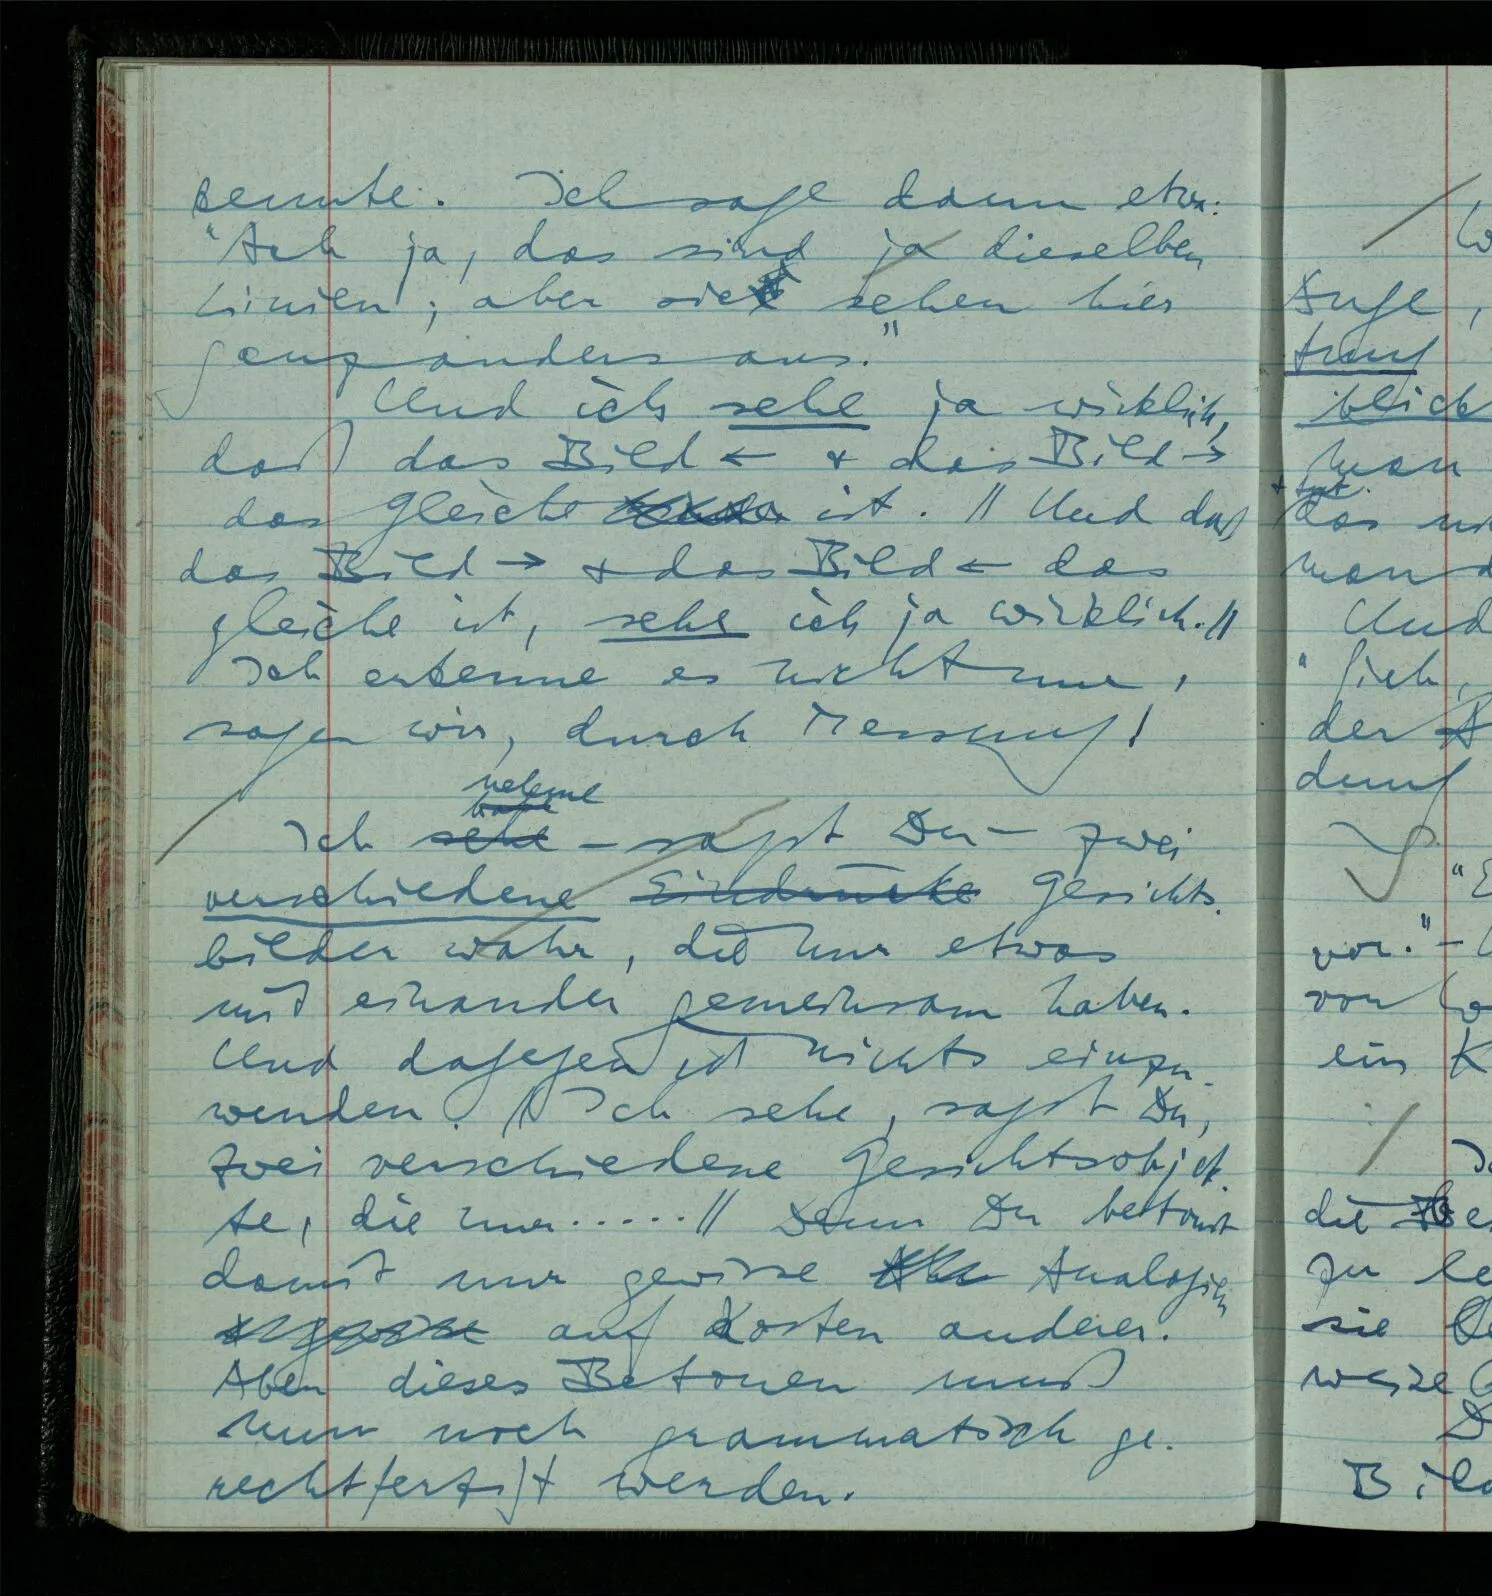 kennte. Ich sage dann etwa:
"Ach ja, das sind ja dieselben
Linien; aber sie sehen hier
ganz anders aus."
Und ich sehe ja wirklich,
daß das Bild ← & das Bild →
das gleiche ist. // Und daß
das Bild → & das Bild ← das
gleiche ist, sehe ich ja wirklich. //
Ich erkenne es nicht nur,
sagen wir, durch Messung!
nehme
habe
Ich sehe – sagst Du – zwei
verschiedene Eindrücke Gesichts-
bilder wahr, die nur etwas
mit einander gemeinsam haben.
Und dagegen ist nichts einzu-
wenden. // Ich sehe, sagst Du,
zwei verschiedene Gesichtsobjek-
te, die nur ..... // Denn Du betonst
damit nur gewisse Analogien
auf Kosten anderer.
Aber dieses Betonen muß
nun noch grammatisch ge-
rechtfertigt werden.
Auge,
blick
man
& tut
das
man
Und
"Sieh,
der
dung
vor." –
von
ein K
die
zu le
sie
weise
D
Bild